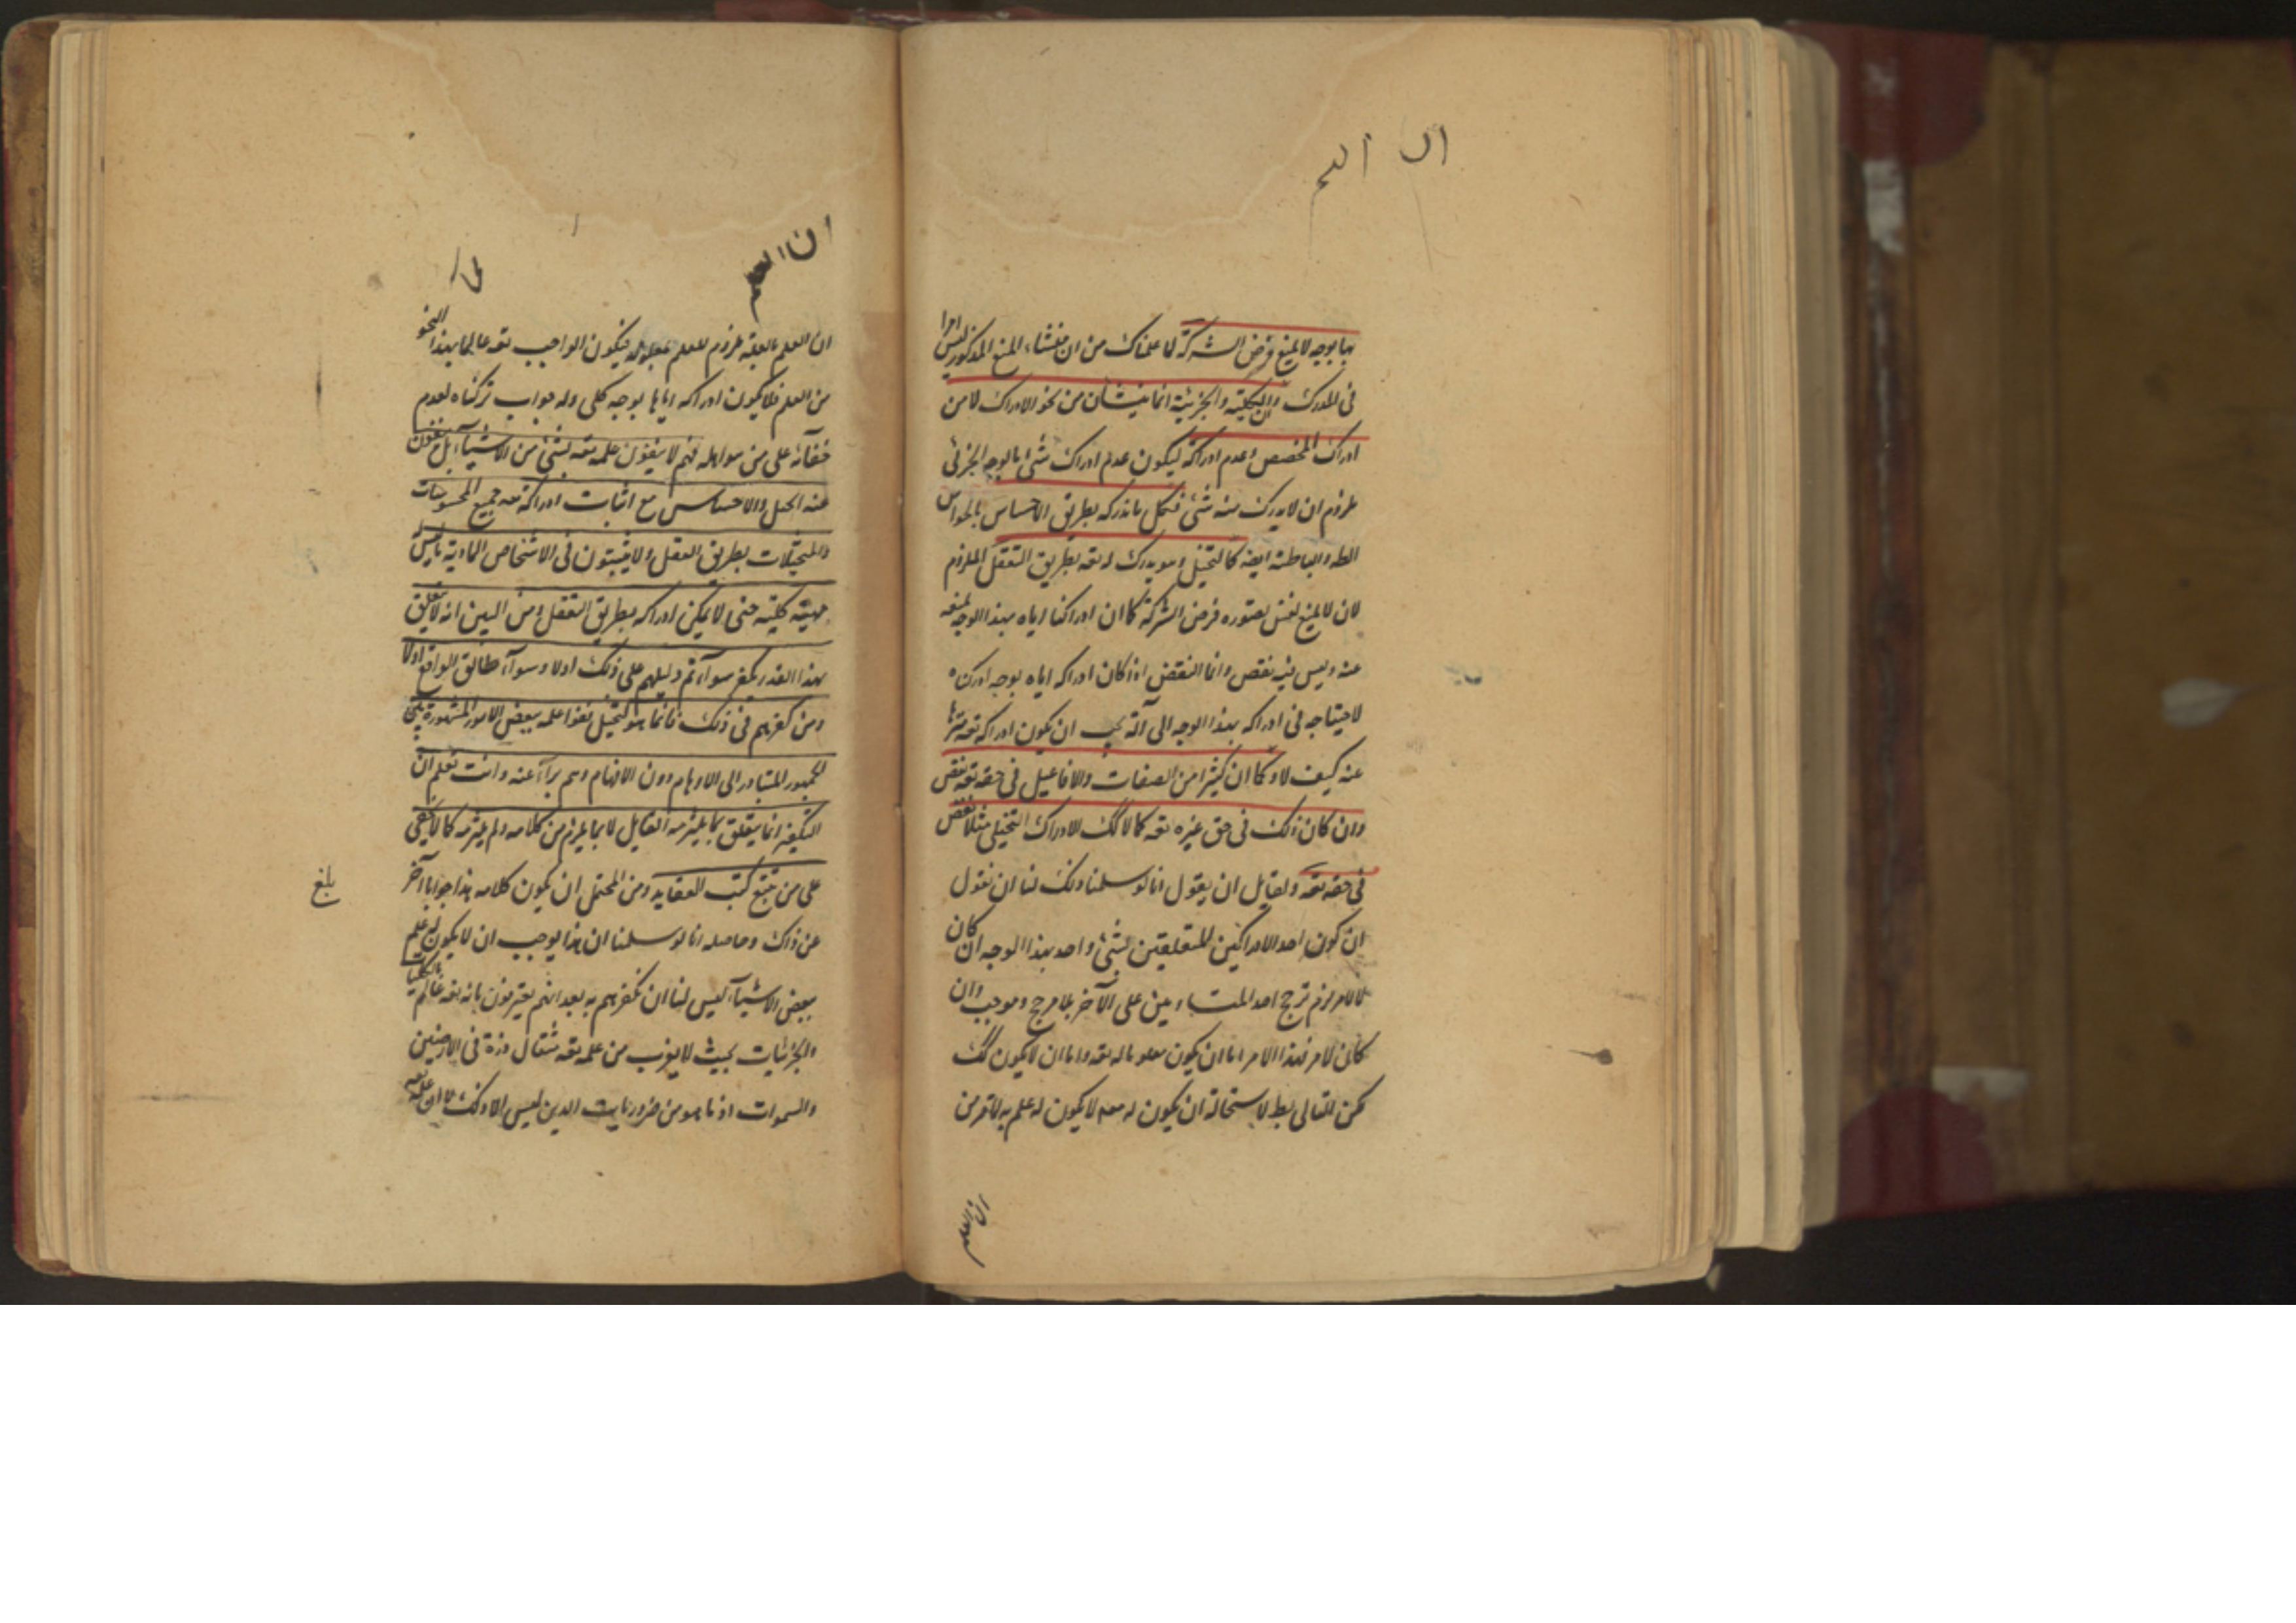 بها بوجه لا يمنع فرض الشركة لما علمناك من ان منشاء المنع المذكور ليس امرا
فى المدرك وان الكلية والجزئية انما ينشأن من نحو الادراك لا من
ادراك المخصص وعدم ادراكه ليكون عدم ادراك شئ بالوجه الجزئى
ملزوم ان لا يدرك منه شئ فكل ما ندركه بطريق الاحساس بالحواس
الظه والباطنة ايضه كالتخيل وهو يدرك له تعه بطريق التعقل الملزوم
لان لا يمنع نفس تصوره فرض الشركة كما ان ادراكنا اياه بهذا الوجه يمنعه
عنه وليس فيه نقص وانما النقص اذا كان ادراكه اياه بوجه ادركناه
لاحتياجه فى ادراكه بهذا الوجه الى آلة يجب ان يكون ادراكه تعه منزها
عنه كيف لا وكما ان كثيرا من الصفات والافاعيل فى حقه تعه نقص
وان كان ذلك فى حق غيره تعه كمالا كك للادراك التخيلى مثلا نقص
فى حقه تعه ولقايل ان يقول انا لو سلمنا ذلك لنا ان نقول
ان كون احد الادراكين المتعلقين بشئ واحد بهذا الوجه ان كان
لا لامر لزم ترجح احد المتساويين على الآخر بلا مرجح وموجب وان
كان لامر فهذا الامر اما ان يكون معلوما له تعه واما ان لا يكون كك
لكن التالى بط لاستحالة ان يكون له معه لا يكون له علم به لما تقرر من
ان العلم
ان العلم بالعلة ملزوم للعلم بمعلوله فيكون الواجب تعه عالما بهذا النحو
من العلم فلا يكون ادراكه اياها بوجه كلى وله جواب تركناه لعدم
خفائه على من هو اهله فهم لا ينفون علمه تعه بشئ من الاشيآء بل ينفون
عنه التخيل والاحساس مع اثبات ادراكه تعه جميع المحسوسات
والمتخيلات بطريق العقل ولا يثبتون فى الاشخاص المادية ما ليس
مهية كلية حتى لا يمكن ادراكه بطريق التعقل ومن البين انه لا يتعلق
بهذا القدر كفر سوآء تم دليلهم على ذلك او لا وسوآء طابق الواقع او لا
ومن كفرهم فى ذلك فانما هو لتخيل نفوا علمه ببعض الامور المشهورة
للجمهور المتبادر الى الاوهام دون الافهام وهم برآء عنه وانت تعلم ان
التكفير انما يتعلق بما يلتزمه القايل لا بما يلزم من كلامه ولم يلتزمه كما لا يخفى
على من تتبع كتب العقايد ومن المحتمل ان يكون كلامه هذا جوابا آخر
عن ذاك وحاصله انا لو سلمنا ان هذا يوجب ان لا يكون له علم
ببعض الاشيآء ليس لنا ان نكفرهم به بعد انهم يعترفون بانه تعه عالم بالكليات
والجزئيات بحيث لا يعزب من علمه تعه مثقال ذرة فى الارضين
والسموات اذ ما هو من ضروريات الدين ليس الا ذلك لا ان علمه تعه
بلغ